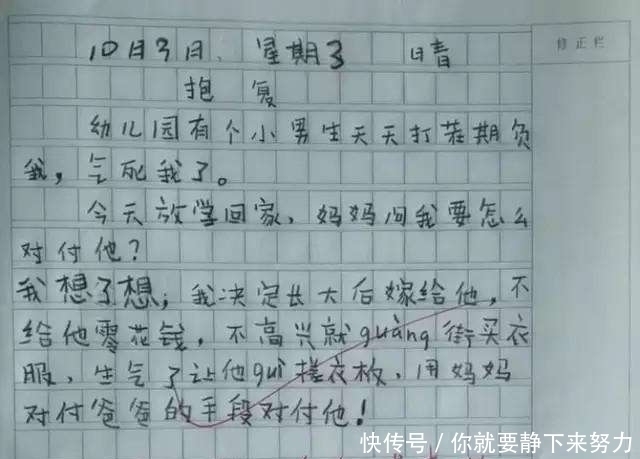 10月3日、星期3 晴
修正栏
抱复
幼儿园有个小男生天天打茬期负
我，气死我了。
今天放学回家、妈妈问我要怎么
对付他？
我想了想，我决定长大后嫁给他，不
给他零花钱，不高兴就guàng街买衣
服、生气了让他guì搓衣板、用妈妈
对付爸爸的手段对付他！
快传号/你就要静下来努力